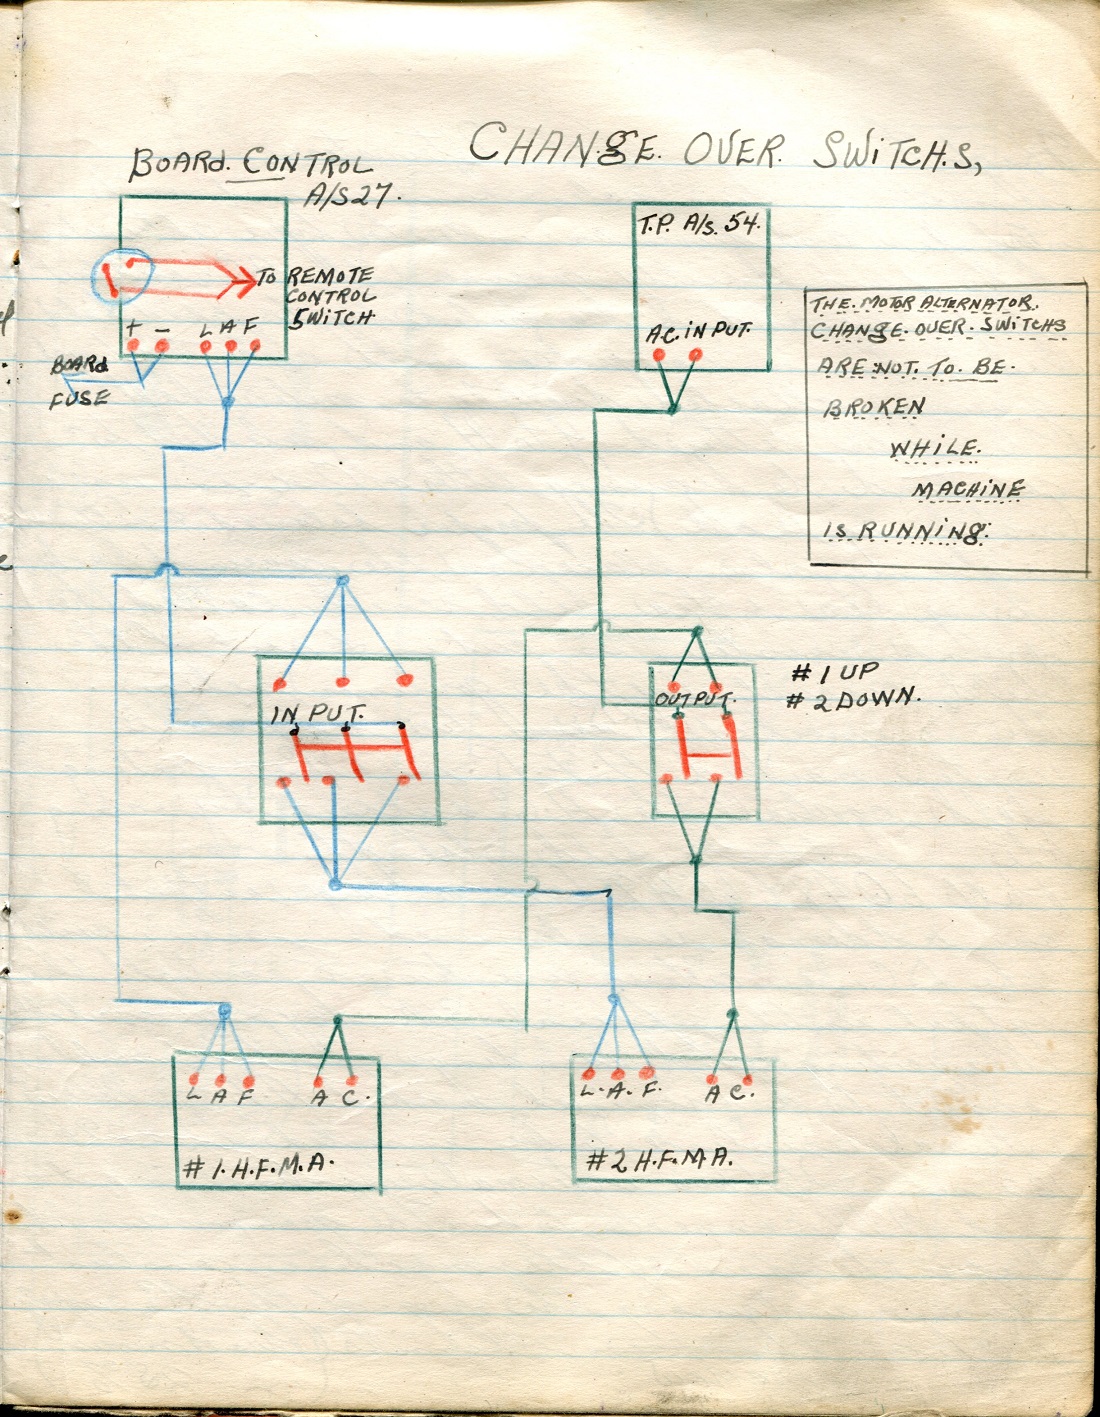 CHANGE. OVER. SWITCH.S,
BOARD. CONTROL
A/S27.
TO REMOTE
CONTROL
SWITCH
+ - L A F
BOARD
FUSE
T.P. A/S. 54.
A.C. IN PUT.
THE. MOTOR ALTERNATOR.
CHANGE. OVER. SWITCHS
ARE NOT. TO. BE.
BROKEN
WHILE.
MACHINE
IS RUNNING.
IN PUT.
OUTPUT.
# 1 UP
# 2 DOWN.
L A F A C.
# 1. H.F.M.A.
L. A. F. A C.
# 2 H.F.M A.